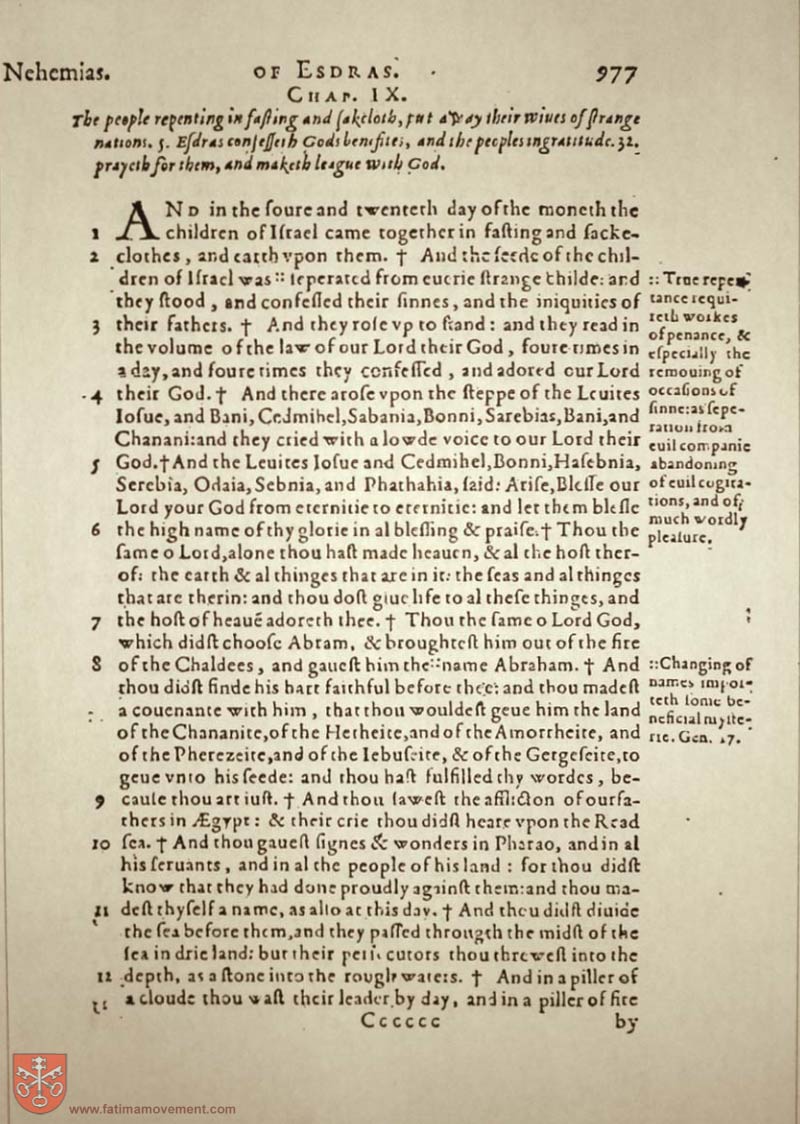 Nehemias. OF ESDRAS. 977
CHAP. IX.
The people repenting in faſting and ſakcloth, put away their wiues of ſtrange
nations. 5. Eſdras confeſſeth Gods benefites, and the peoples ingratitude. 32.
prayeth for them, and maketh league with God.
AND in the foure and twenteth day of the moneth the
1 children of Iſrael came together in faſting and ſacke-
2 clothes, and earth vpon them. † And the ſeede of the chil-
dren of Iſrael was :: ſeperated from euerie ſtrange childe: and
they ſtood, and confeſſed their ſinnes, and the iniquities of
3 their fathers. † And they roſe vp to ſtand: and they read in
the volume of the law of our Lord their God, foure times in
a day, and foure times they confeſſed, and adored our Lord
4 their God. † And there aroſe vpon the ſteppe of the Leuites
Ioſue, and Bani, Cedmihel, Sabania, Bonni, Sarebias, Bani, and
Chanani: and they cried with a lowde voice to our Lord their
5 God. † And the Leuites Ioſue and Cedmihel, Bonni, Haſebnia,
Serebia, Odaia, Sebnia, and Phathahia, ſaid: Ariſe, Bleſſe our
Lord your God from eternitie to eternitie: and let them bleſſe
6 the high name of thy glorie in al bleſſing & praiſe. † Thou the
ſame o Lord, alone thou haſt made heauen, & al the hoſt ther-
of: the earth & al thinges that are in it: the ſeas and al thinges
that are therin: and thou doſt giue life to al theſe thinges, and
7 the hoſt of heauē adoreth thee. † Thou the ſame o Lord God,
which didſt chooſe Abram, & broughteſt him out of the fire
8 of the Chaldees, and gaueſt him the :: name Abraham. † And
thou didſt finde his hart faithful before thee: and thou madeſt
a couenante with him, that thou wouldeſt geue him the land
of the Chananite, of the Hetheite, and of the Amorrheite, and
of the Pherezeite, and of the Iebuſeite, & of the Gergeſeite, to
geue vnto his ſeede: and thou haſt fulfilled thy wordes, be-
9 cauſe thou art iuſt. † And thou ſaweſt the affliction of our fa-
thers in Ægypt: & their crie thou didſt heare vpon the Read
10 ſea. † And thou gaueſt ſignes & wonders in Pharao, and in al
his ſeruants, and in al the people of his land: for thou didſt
know that they had done proudly againſt them: and thou ma-
11 deſt thyſelf a name, as alſo at this day. † And thou didſt diuide
the ſea before them, and they paſſed througth the midſt of the
ſea in drie land: but their perſecutors thou threweſt into the
12 depth, as a ſtone into the rough waters. † And in a piller of
a cloude thou waſt their leader by day, and in a piller of fire
Cccccc by
:: True repen-
tance requi-
reth workes
of penance, &
eſpecially the
remouing of
occaſions of
ſinne: as ſepe-
ration from
euil companie
abandoning
of euil cogita-
tions, and of
much wordly
pleaſure.
:: Changing of
names impor-
teth ſome be-
neficial myſte-
rie. Gen. 17.
www.fatimamovement.com